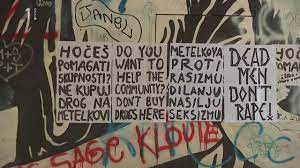 DANBL
HOČEŠ
POMAGATI
SKUPNOSTI?
NE KUPUJ
DROG NA
METELKOVI
DO YOU
WANT TO
HELP THE
COMMUNITY?
DON'T BUY
DRUGS HERE
METELKOVA
PROTI
RASIZMU,
DILANJU
NASILJU
SEKSIZMU
DEAD
MEN
DON'T
RAPE!
KLOUTE